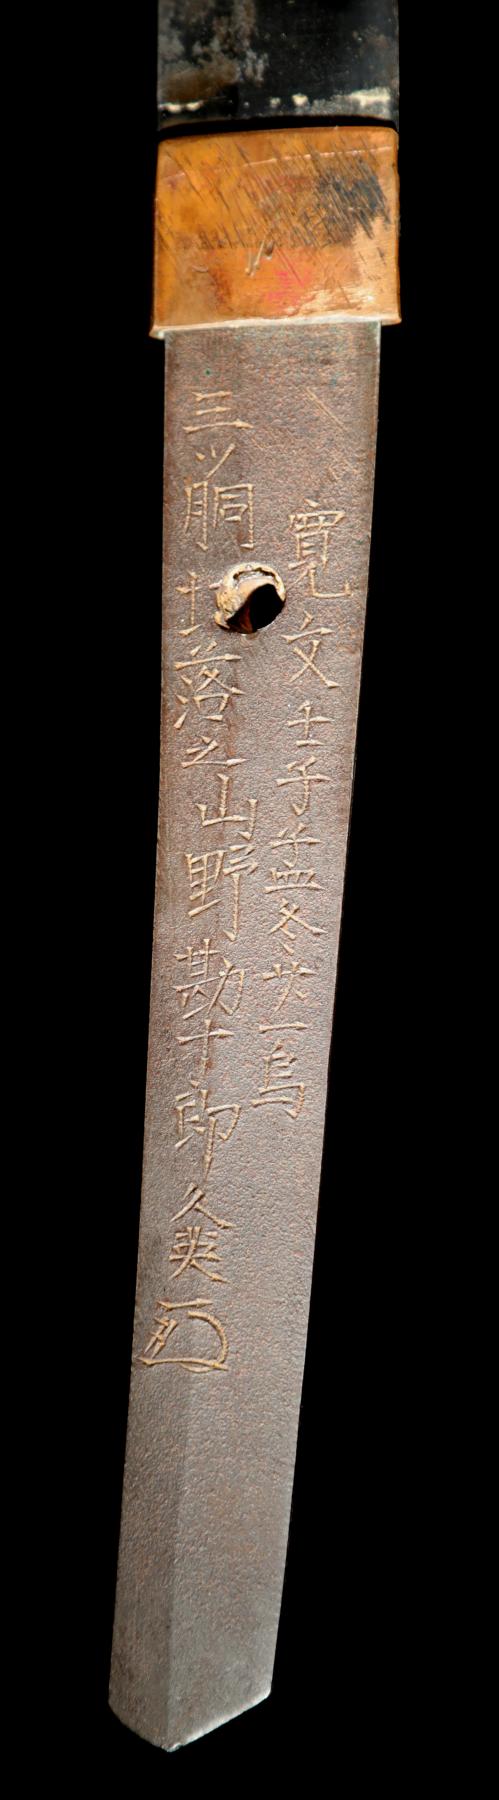 寛文壬子孟冬廿一烏
三ツ胴切落之山野勘十郎久英